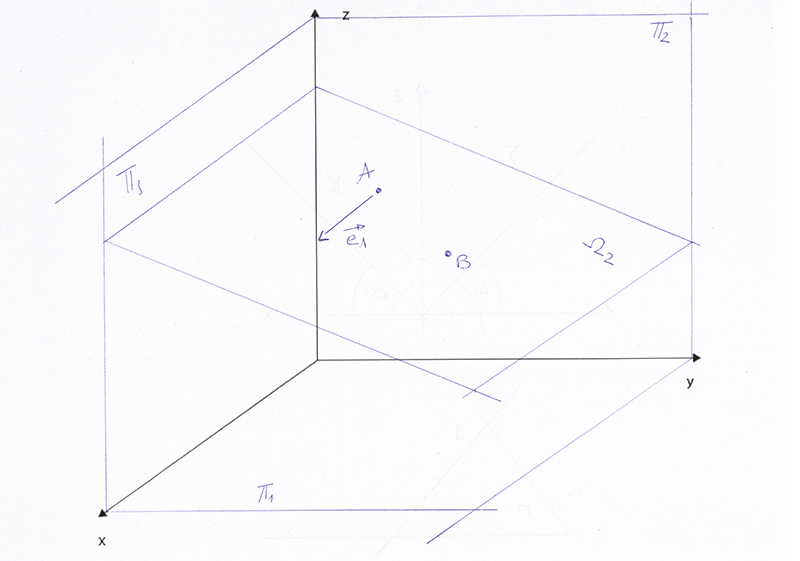 z
π₂
π₃
A
e₁
B
Ω₂
y
π₁
x